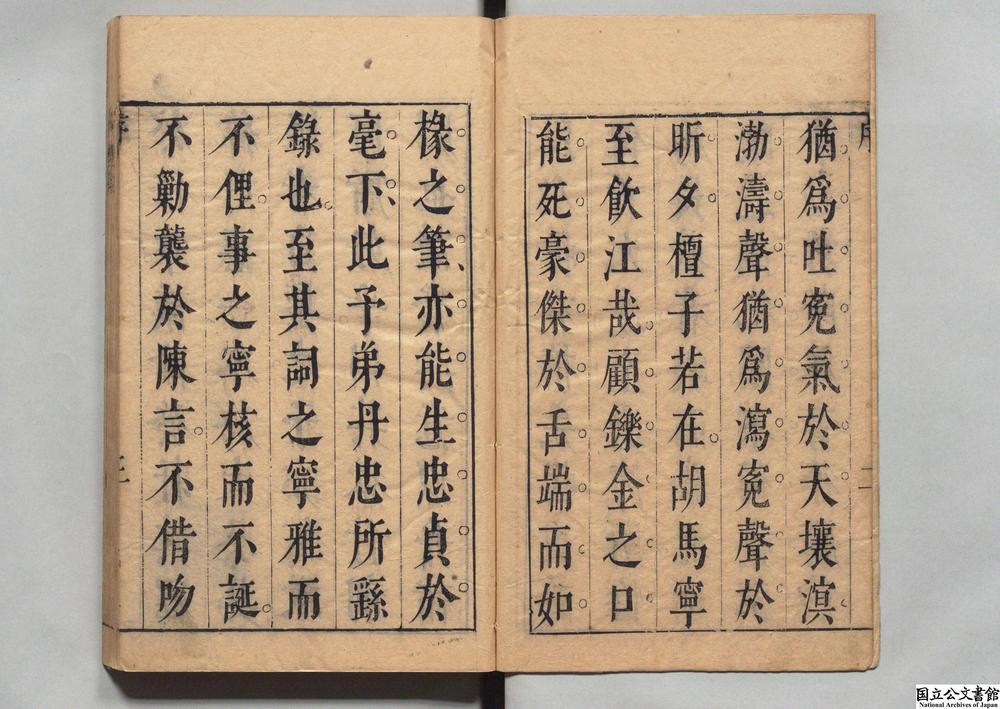 猶爲吐寃氣於天壤溟
渤濤聲猶爲瀉寃聲於
昕夕檀子若在胡馬寧
至飲江哉顧鑠金之口
能死豪傑於舌端而如
椽之筆亦能生忠貞於
毫下此予弟丹忠所繇
錄也至其詞之寧雅而
不俚事之寧核而不誕
不勦襲於陳言不借吻
国立公文書館
National Archives of Japan